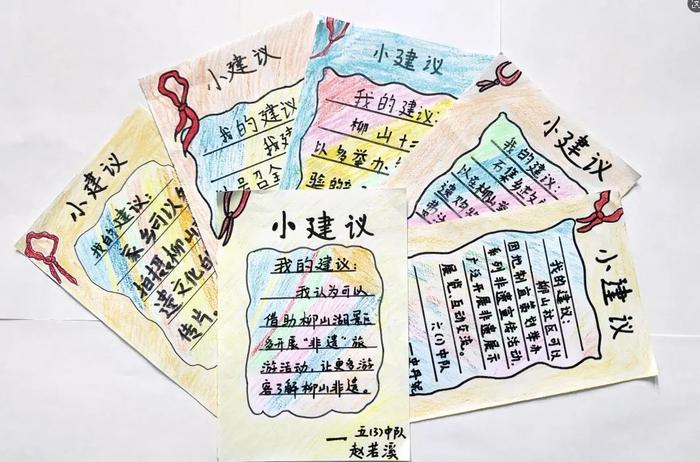 小建议
我的建议:
家乡可以
拍摄柳山
遗文化的
传片。
小建议
我的建议
我建
小建议
我的建议:
柳山十
以多举办
验的
小建议
我的建议:
小建议
我的建议:
我认为可以
借助柳山湖景区
多开展“非遗”旅
游活动,让更多游
客了解柳山非遗。
五(3)中队
赵若溪
小建议
我的建议:
柳山社区可以
因地制宜策划举办
系列非遗宣传活动,
广泛开展非遗展示
展览互动交流。
六(1)中队